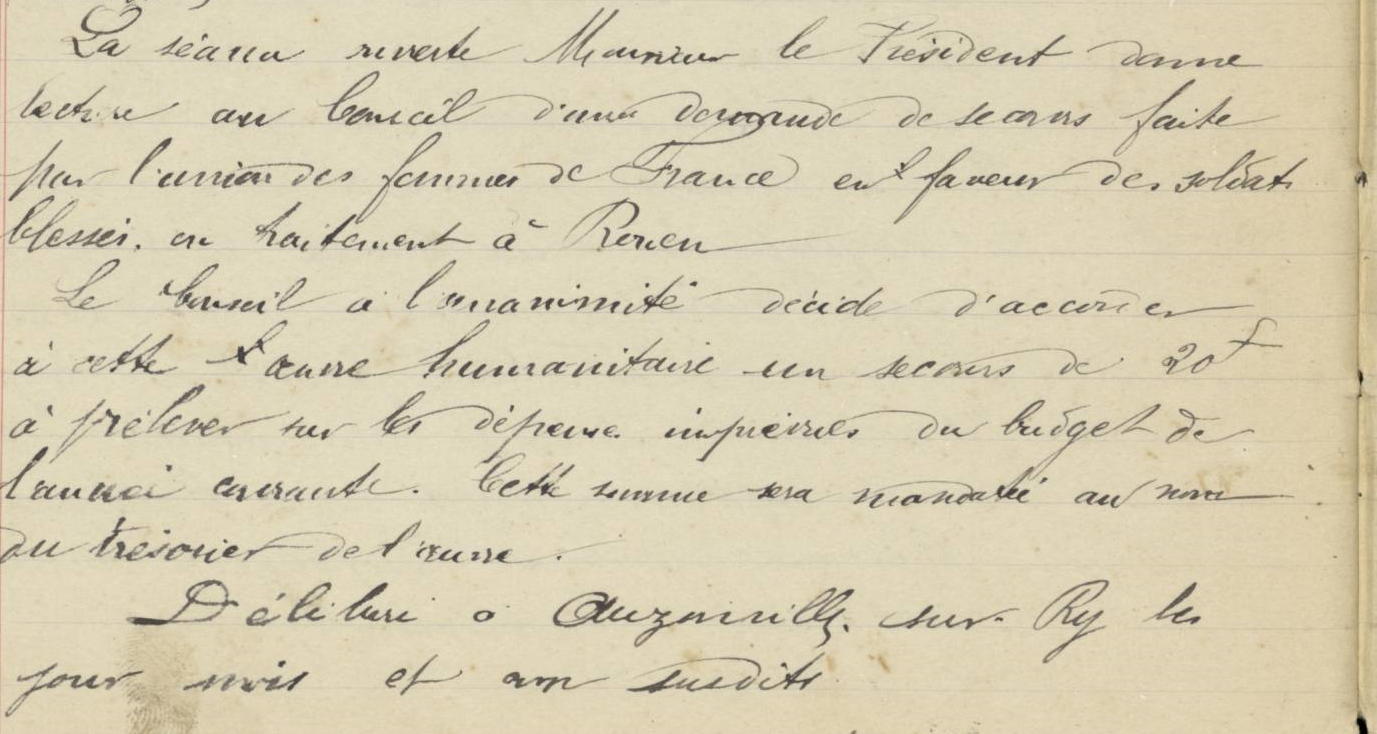 La séance ouverte Monsieur le Président donne
lecture au Conseil d'une demande de secours faite
par l'union des femmes de France en faveur des soldats
blessés en traitement à Rouen
Le Conseil à l'unanimité décide d'accorder
à cette œuvre humanitaire un secours de 20f
à prélever sur les dépenses imprévues du budget de
l'année courante. Cette somme sera mandatée au nom
du trésorier de l'œuvre.
Délibéré à Auzouville-sur-Ry les
jour mois et an susdits